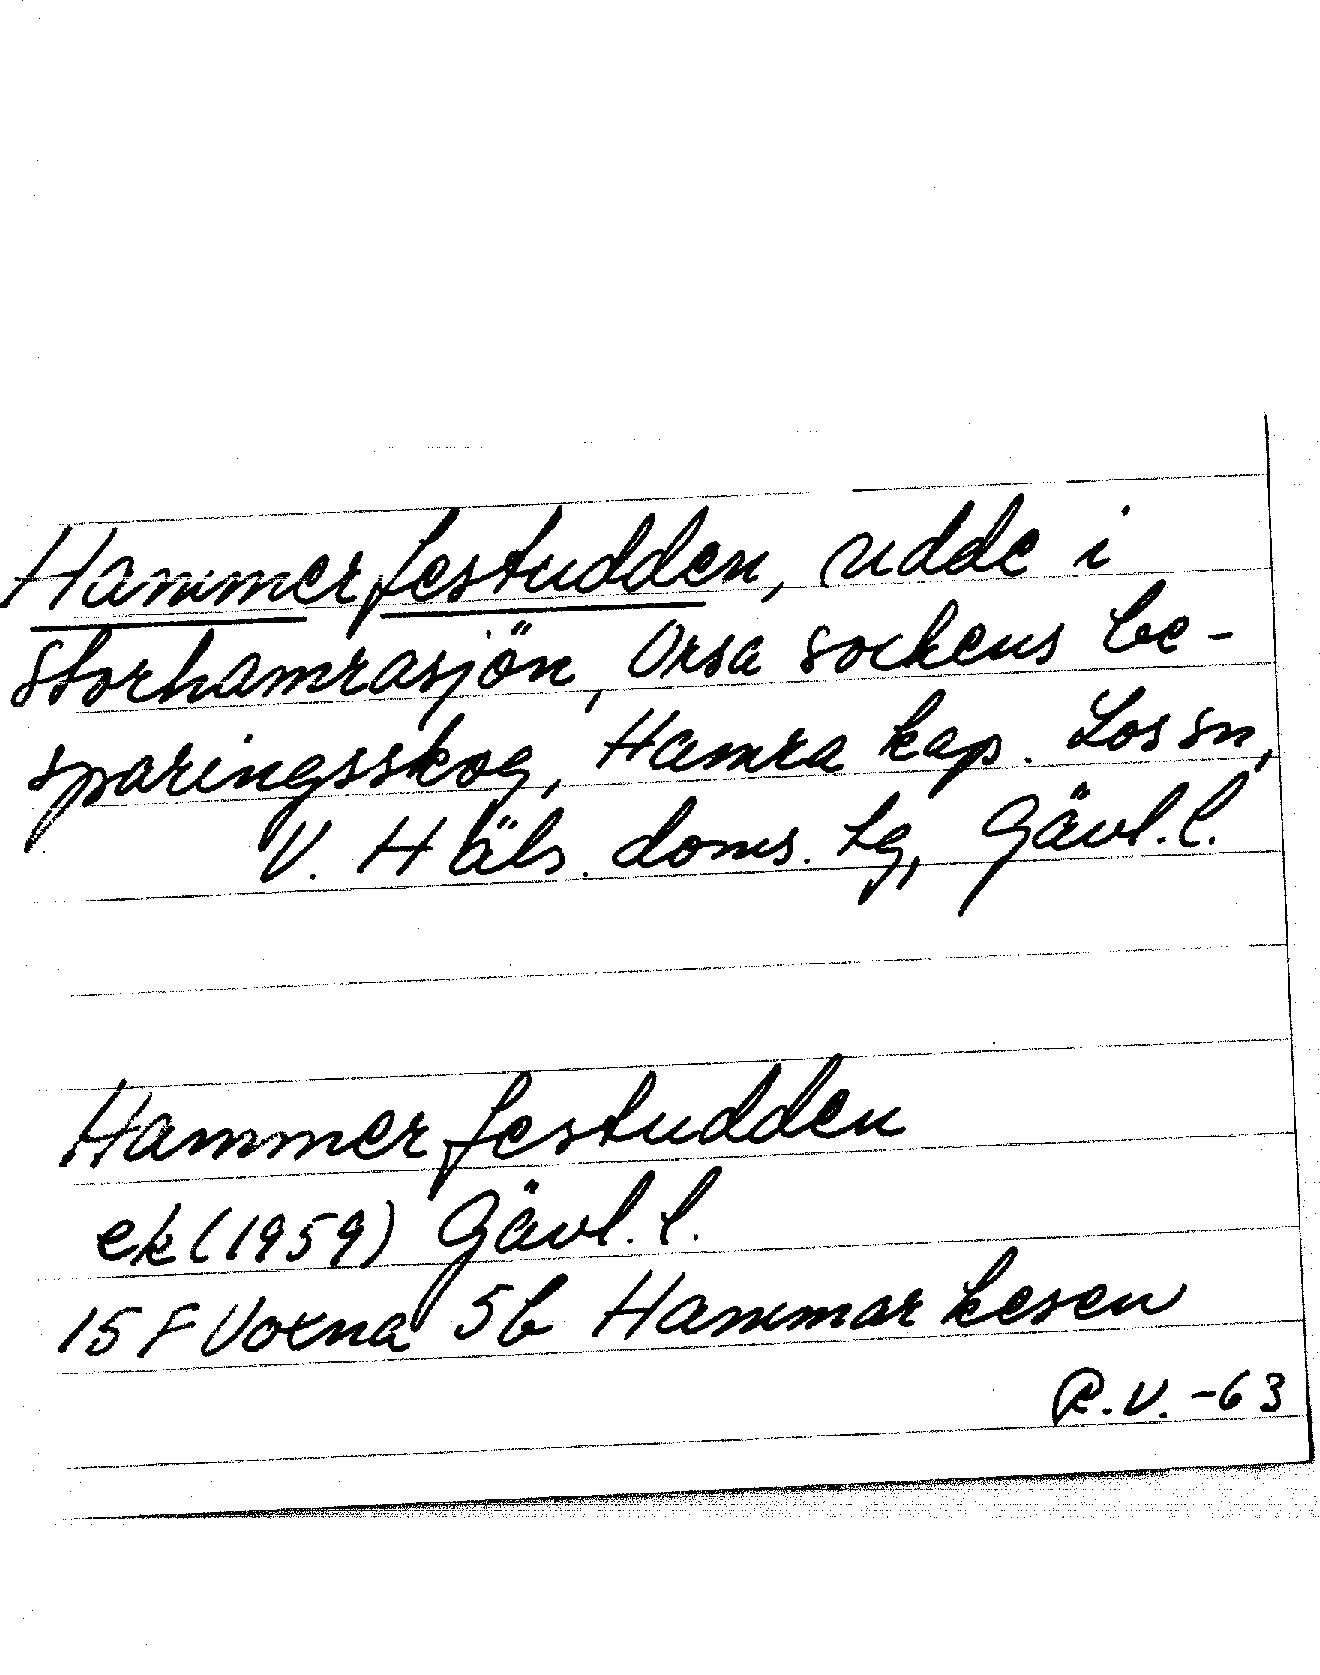 Hammerfestudden, udde i
Storhamrasjön, Orsa sockens be-
sparingsskog, Hamra kap. Los sn,
V. Häls. doms. lg, Gävl. l.
Hammerfestudden
ek (1959) Gävl. l.
15 F Voxna 5b Hammarkesen
R.V. -63